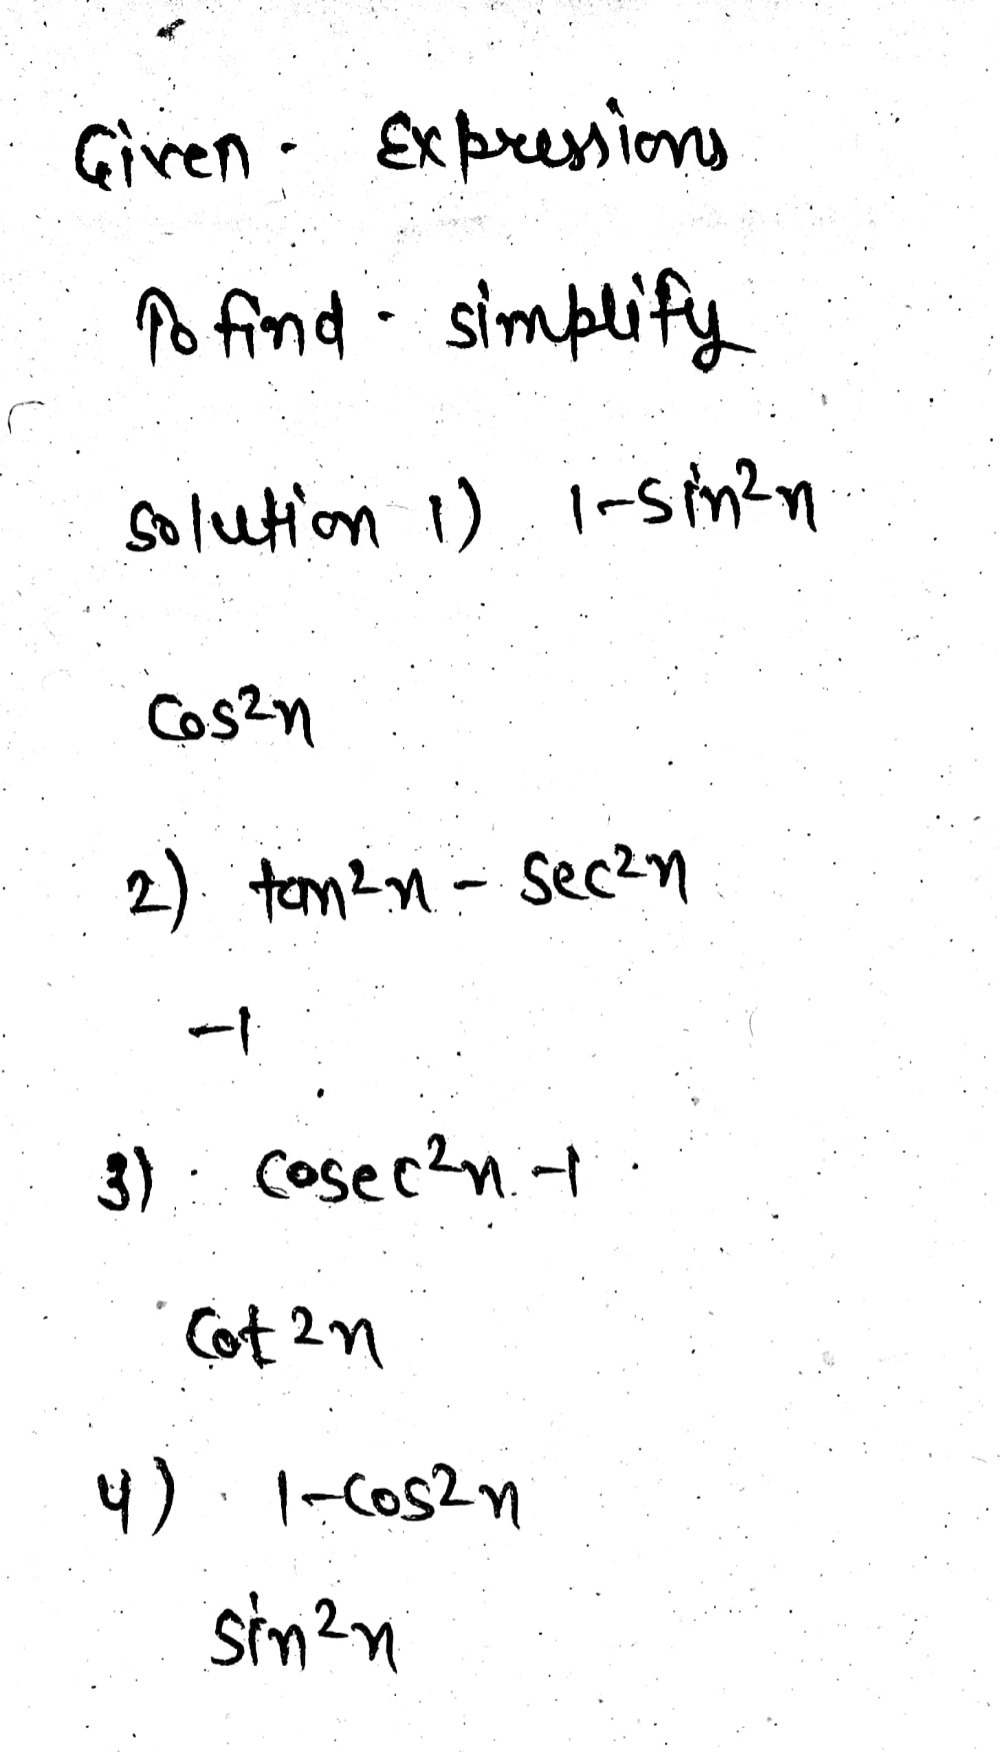 Given - Expressions
To find - simplify
Solution 1) 1-sin²n
Cos²n
2) tan²n - Sec²n
-1
3) Cosec²n -1
Cot²n
4) 1-Cos²n
Sin²n